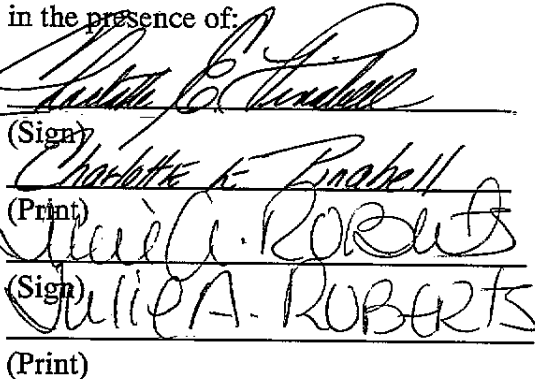 in the presence of:
Charlotte E
(Sign)
Charlotte E
(Print)
Julie A. Roberts
(Sign)
Julie A. ROBERTS
(Print)